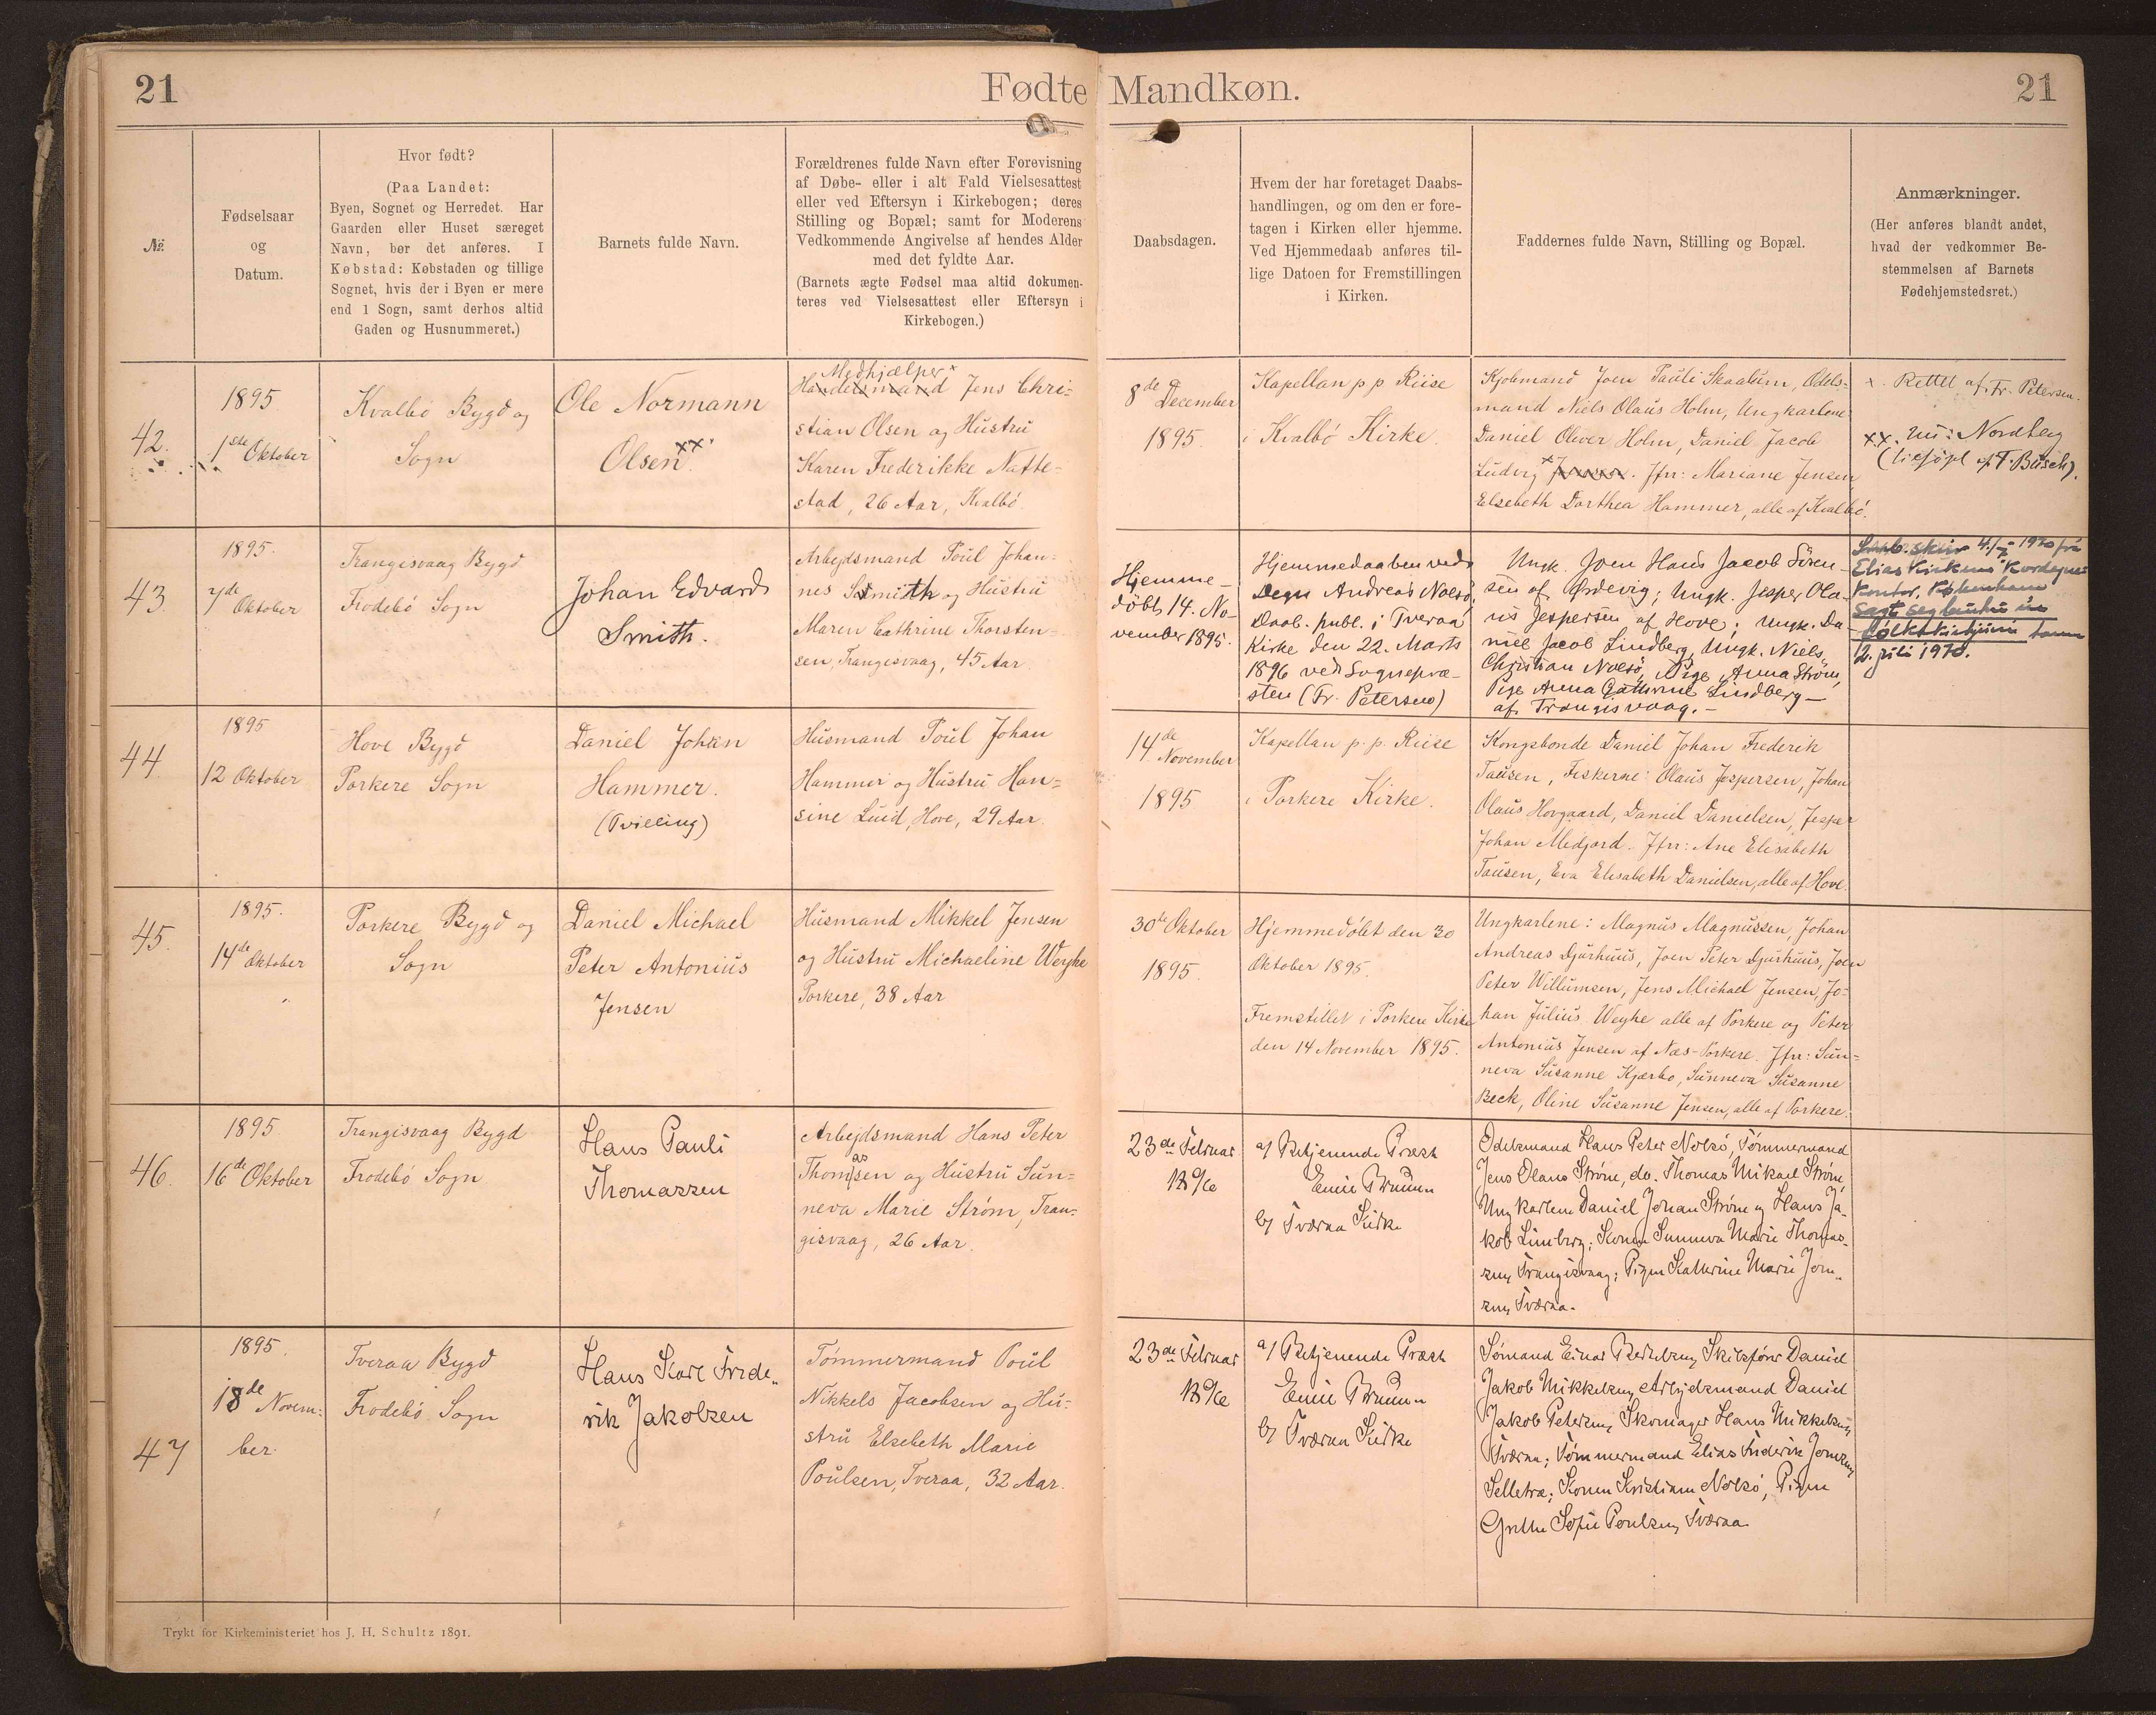 21
Fødte Mandkøn.
21
№
Fødselsaar
og
Datum.
Hvor født?
(Paa Landet:
Byen, Sognet og Herredet. Har
Gaarden eller Huset særeget
Navn, bør det anføres. I
Købstad: Købstaden og tillige
Sognet, hvis der i Byen er mere
end 1 Sogn, samt derhos altid
Gaden og Husnummeret.)
Barnets fulde Navn.
Forældrenes fulde Navn efter Forevisning
af Døbe- eller i alt Fald Vielsesattest
eller ved Eftersyn i Kirkebogen; deres
Stilling og Bopæl; samt for Moderens
Vedkommende Angivelse af hendes Alder
med det fyldte Aar.
(Barnets ægte Fødsel maa altid dokumen-
teres ved Vielsesattest eller Eftersyn i
Kirkebogen.)
Daabsdagen.
Hvem der har foretaget Daabs-
handlingen, og om den er fore-
tagen i Kirken eller hjemme.
Ved Hjemmedaab anføres til-
lige Datoen for Fremstillingen
i Kirken.
Faddernes fulde Navn, Stilling og Bopæl.
Anmærkninger.
(Her anføres blandt andet,
hvad der vedkommer Be-
stemmelsen af Barnets
Fødehjemstedsret.)
42.
1895
1ste Oktober
Kvalbö Bygd og
Sogn
Ole Normann
Olsen xx.
Medhjælper x
Handelsmand Jens Chri=
stian Olsen og Hustru
Karen Frederikke Natte=
stad, 26 Aar, Kvalbö.
8de December
1895.
Kapellan p p Riise
i Kvalbö Kirke.
Kjobmand Joen Pauli Skaalum, Odels=
mand Niels Olaus Holm, Ungkarlene
Daniel Oliver Holm, Daniel Jacob
Ludvig x . Jfr: Mariane Jensen,
Elsebeth Dorthea Hammer, alle af Kvalbö.
x. Rettet af Fr. Petersen.
xx. nu: Nordberg
(tilföjet af F. Busch).
43.
1895.
7de Oktober
Trangisvaag Bygd
Frodebö Sogn
Johan Edvard
Smith.
Arbejdsmand Poul Johan=
nes Smith og Hustru
Maren Cathrine Thorsten=
sen, Trangisvaag, 45 Aar
Hjemme-
döbt 14. No-
vember 1895.
Hjemmedaaben ved
Degn Andreas Nolsö.
Daab. publ. i Tveraa
Kirke den 22. Marts
1896 ved Sognepræ-
sten (Fr. Petersen)
Ungk. Joen Hans Jacob Sören-
sen af Ørdevig; Ungk. Jesper Ola-
us Jespersen af Hove; Ungk. Da-
niel Jacob Lindberg, Ungk. Niels
Christian Nolsö, Pige Anna Ström,
Pige Anna Cathrine Lindberg —
af Trangisvaag. —
1970 frá
Elias Kirkens Kordegne-
Kontor, København
2. juli 1970.
44.
1895
12 Oktober
Hove Bygd
Porkere Sogn
Daniel Johan
Hammer.
(Tvilling)
Husmand Poul Johan
Hammer og Hustru Han=
sine Luid, Hove, 29 Aar.
14de November
1895
Kapellan p. p. Riise
i Porkere Kirke.
Kongsbonde Daniel Johan Frederik
Tausen, Fiskerne: Olaus Jespersen, Johan
Olaus Hovgaard, Daniel Danielsen, Jesper
Johan Midjord. Jfrr: Ane Elisabeth
Tausen, Eva Elisabeth Danielsen, alle af Hove.
45.
1895.
14de Oktober
Porkere Bygd og
Sogn
Daniel Michael
Peter Antonius
Jensen
Husmand Mikkel Jensen
og Hustru Michaeline Weyhe
Porkere, 38 Aar
30te Oktober
1895.
Hjemmedöbt den 30
Oktober 1895.
Fremstillet i Porkere Kirke
den 14 November 1895.
Ungkarlene: Magnus Magnussen, Johan
Andreas Djurhuus, Joen Peter Djurhuus, Joen
Peter Willumsen, Jens Michael Jensen, Jo=
han Julius Weyhe alle af Porkere og Peter
Antonius Jensen af Næs-Porkere. Jfrr: Sun=
neva Susanne Kjærbo, Sunneva Susanne
Beck, Oline Susanne Jensen, alle af Porkere.
46.
1895
16de Oktober
Trangisvaag Bygd
Frodebö Sogn
Hans Pauli
Thomassen
Arbejdsmand Hans Peter
Thomassen og Hustru Sun=
neva Marie Ström, Tran=
gisvaag, 26 Aar.
23de Februar
18 96
a) Betjenende Præst
Emil Bruun
b) Tværaa Kirke
Odelsmand Hans Peter Nolsö, Tömmermand
Jens Olaus Ström, do. Thomas Mikael Ström,
Ungkarlene Daniel Johan Ström og Hans Ja-
kob Limberg; Konen Sunneva Marie Thomas-
sen, Trangisvaag; Pigen Katherine Marie Joen-
sen, Tværaa.
47
1895.
18de Novem=
ber
Tveraa Bygd
Frodebö Sogn
Hans Karl Frede-
rik Jakobsen
Tömmermand Poul
Nikkels Jacobsen og Hu=
stru Elsebeth Marie
Poulsen, Tveraa, 32 Aar.
23de Februar
18 96
a) Betjenende Præst
Emil Bruun
b) Tværaa Kirke
Sömand Einar Berthelsen, Skibsförer Daniel
Jakob Mikkelsen, Arbejdsmand Daniel
Jakob Petersen, Skomager Hans Mikkelsen,
Tværaa; Tömmermand Elias Frederik Joensen,
Selletræ; Konen Kristiane Nolsö, Pigen
Grethe Sofie Poulsen, Tværaa
Trykt for Kirkeministeriet hos J. H. Schultz 1891.